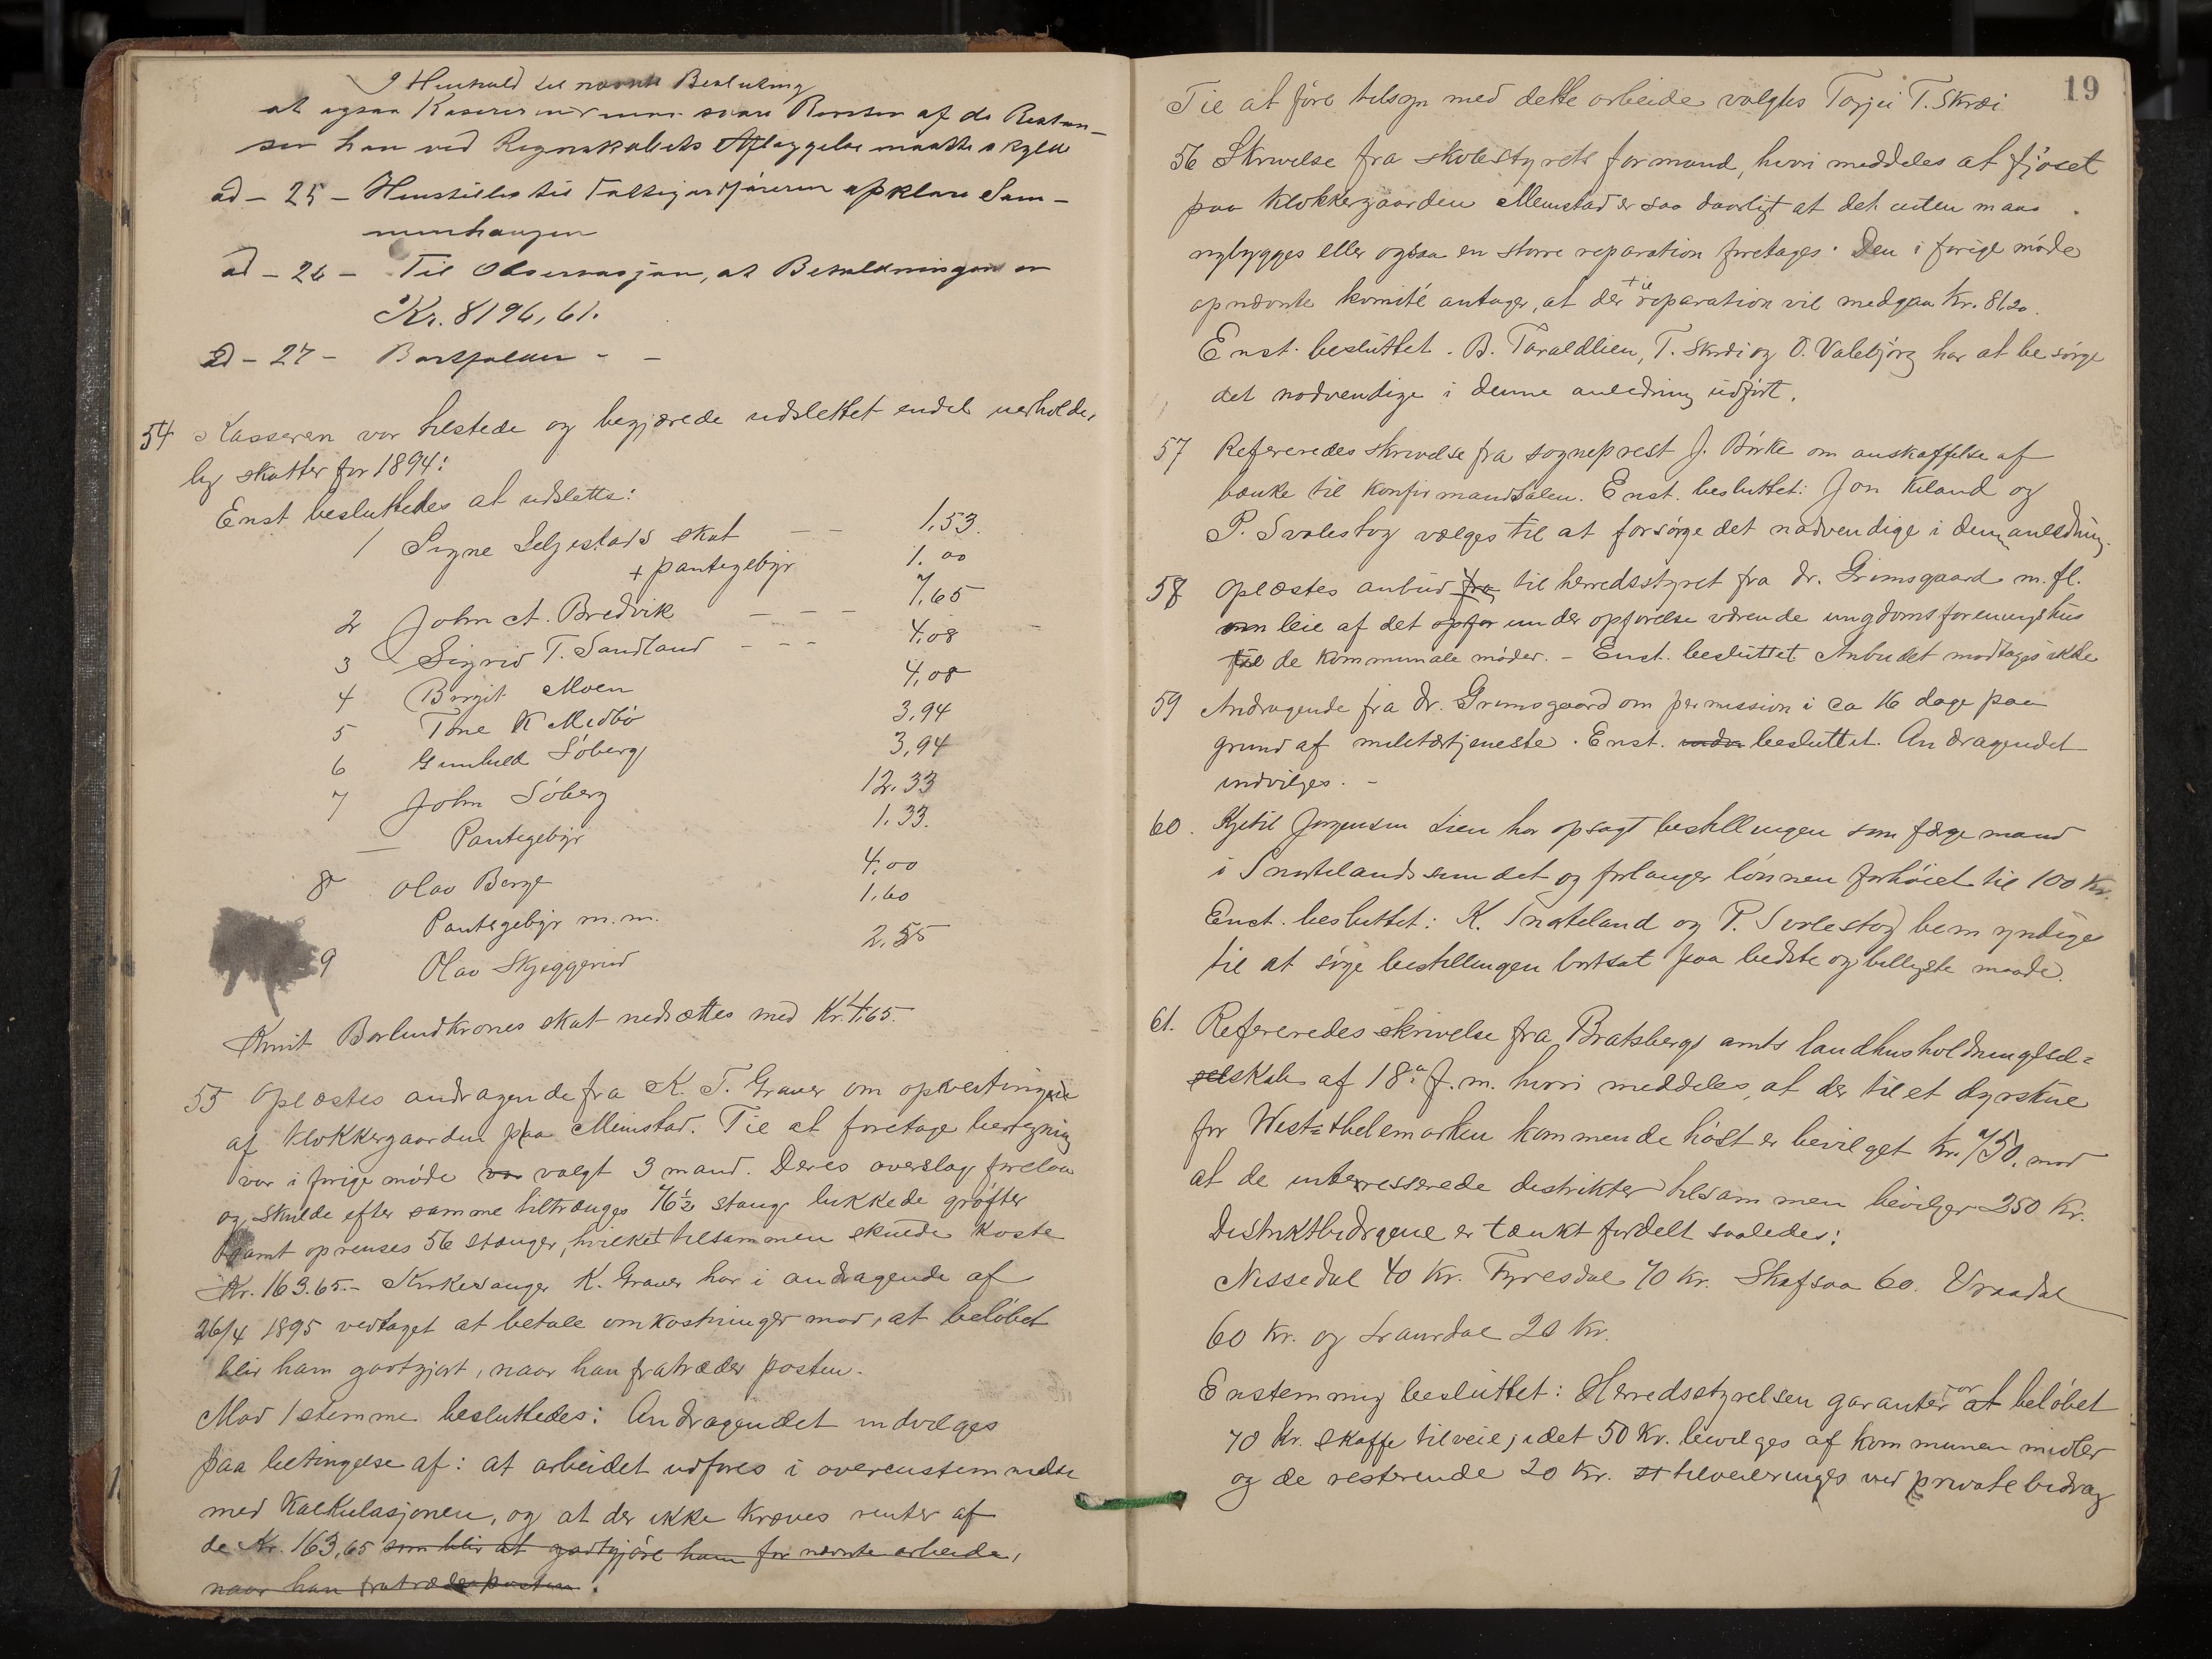 I Henhold til nævnte Beslutning
at ogsaa Kasereren maa svare Renten af de Restan-
ser han ved Regnskabets Aflæggelse maatte skylde
ad - 25 - Henstilles til Fattigkasserern opklare Sam-
menhængen
ad - 26 - Til Observasjon, at Beholdningen er
Kr. 8196,61.
ad - 27 - Bortfalder - -
54 Kasseren var tilstede og begjærede udslettet endel uerholde-
lige skatter for 1894:
Enst. besluttedes at udslette:
1 Signe Seljestads skat - - 1,53.
+ pantegebyr 1.00
2 John A. Bredvik - - - 7,65
3 Sigrid T. Sandland - - - 4,08
4 Birgit Moen 4,08
5 Tone K Medbö 3,94
6 Gunhild Söberg 3,94
7 John Söberg 12.33
— Pantegebyr 1.33.
8 Olav Berge 4,00
Pantegebyr m.m. 1,60
9 Olav Skjeggerud 2,55
Knut Borlindkrones skat nedsættes med Kr. 4,65.
55 Oplæstes andragende fra K. T. Graver om opveitingen
af Klokkergaarden paa Meinstad. Til at foretage beregning
var i forige möde var valgt 3 mand. Deres overslag forelaa
og skulde efter samme tiltrænges 76½ stang lukkede gröfter
samt oprenses 56 stænger, hvilket tilsammen skulde koste
Kr. 163.65.- Kirkesanger K. Graver har i andragende af
26/4 1895 vedtaget at betale omkostninger mod, at belöbet
blir ham godtgjort, naar han fratræder posten.
Mod 1 stemme besluttedes: Andragendet indvilges
paa betingelse af: at arbeidet udföres i overenstemmelse
med Kalkulasjonen, og at der ikke kræves renter af
de Kr. 163,65 som blir at godtgjöre ham for nævnte arbeide,
naar han fratræder posten.
19
Til at före tilsyn med dette arbeide valgtes Torjei T. Skræi
56 Skrivelse fra skolestyrets formand, hvori meddeles at fjöset
paa Klokkergaarden Meinstad er saa daarligt at det enten maa
nybygges eller ogsaa en större reparation foretages. Den i forige möde
opnævnte komité antager, at der til reparation vil medgaa Kr. 81,20.
Enst. besluttet. B. Taraldlien, T. Skræi og O. Valebjörg har at besörge
det nödvendige i denne anledning udfört.
57 Refereredes skrivelse fra sogneprest J. Birke om anskaffelse af
bænke til Konfirmandsalen. Enst. besluttet: Jon Kiland og
P. Svalestog vælges til at forsörge det nödvendige i denne anledning.
58 Oplæstes anbud fra til herredsstyret fra dr. Grimsgaard m. fl.
om leie af det opför under opförelse værende ungdomsforeningshus
til de kommunale möder. - Enst. besluttet Anbudet modtages ikke
59 Andragende fra dr. Grimsgaard om permission i ca 16 dage paa
grund af militærtjeneste. Enst. besluttet. Andragendet
indvilges. -
60. Kjetil Jörgensen Lien har opsagt bestillingen som færgemand
i Snartelandssundet og forlanger lönnen forhöiet til 100 Kr.
Enst. besluttet: K. Snarteland og P. Svalestog bemyndiges
til at söge bestillingen bortsat paa bedste og billigste maade.
61. Refereredes skrivelse fra Bratsbergs amts landhusholdningssel=
selskab af 18. f.m. hvori meddeles, at der til et dyrskue
for West=thelemarken kommende höst er bevilget Kr. 750, mod
at de interresserede distrikter tilsammen bevilger 250 Kr.
Distriktbidragene er tænkt fordelt saaledes:
Nissedal 40 Kr. Fyresdal 70 Kr. Skafsaa 60. Vraadal
60 Kr. og Laurdal 20 Kr.
Enstemmig besluttet: Herredsstyrelsen garanterer for at belöbet
70 Kr. skaffe tilveie, idet 50 Kr. bevilges af kommunen midler
og de resterende 20 Kr. tilveiebringes ved private bidrag